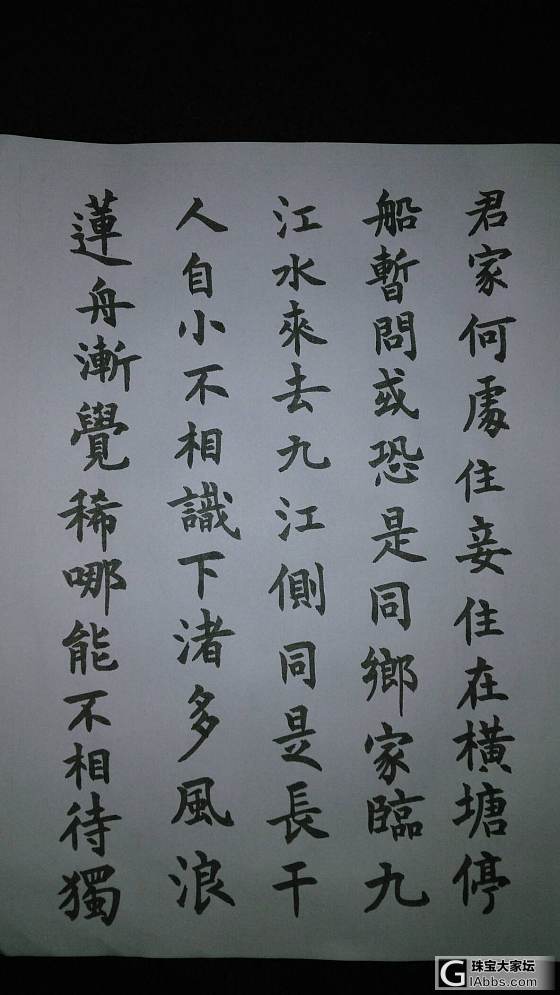 君家何處住妾住在橫塘停
船暫問或恐是同鄉家臨九
江水來去九江側同是長干
人自小不相識下渚多風浪
蓮舟漸覺稀哪能不相待獨
珠宝大家坛
GIAbbs.com